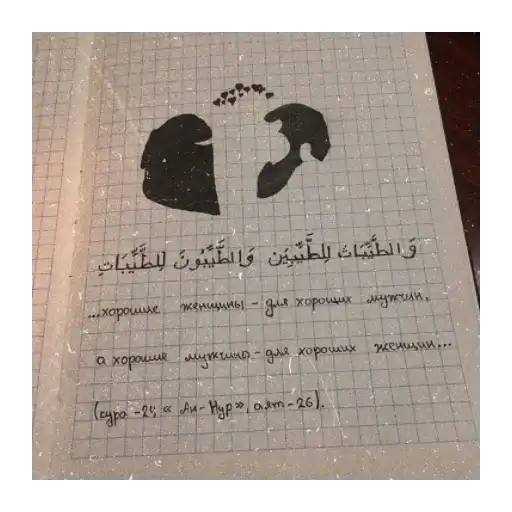 وَالطَّيِّبَاتُ لِلطَّيِّبِينَ وَالطَّيِّبُونَ لِلطَّيِّبَاتِ
...хорошие женщины - для хороших мужчин,
а хорошие мужчины - для хороших женщин...
(сура - 24, « Ан - Нур», аят - 26).